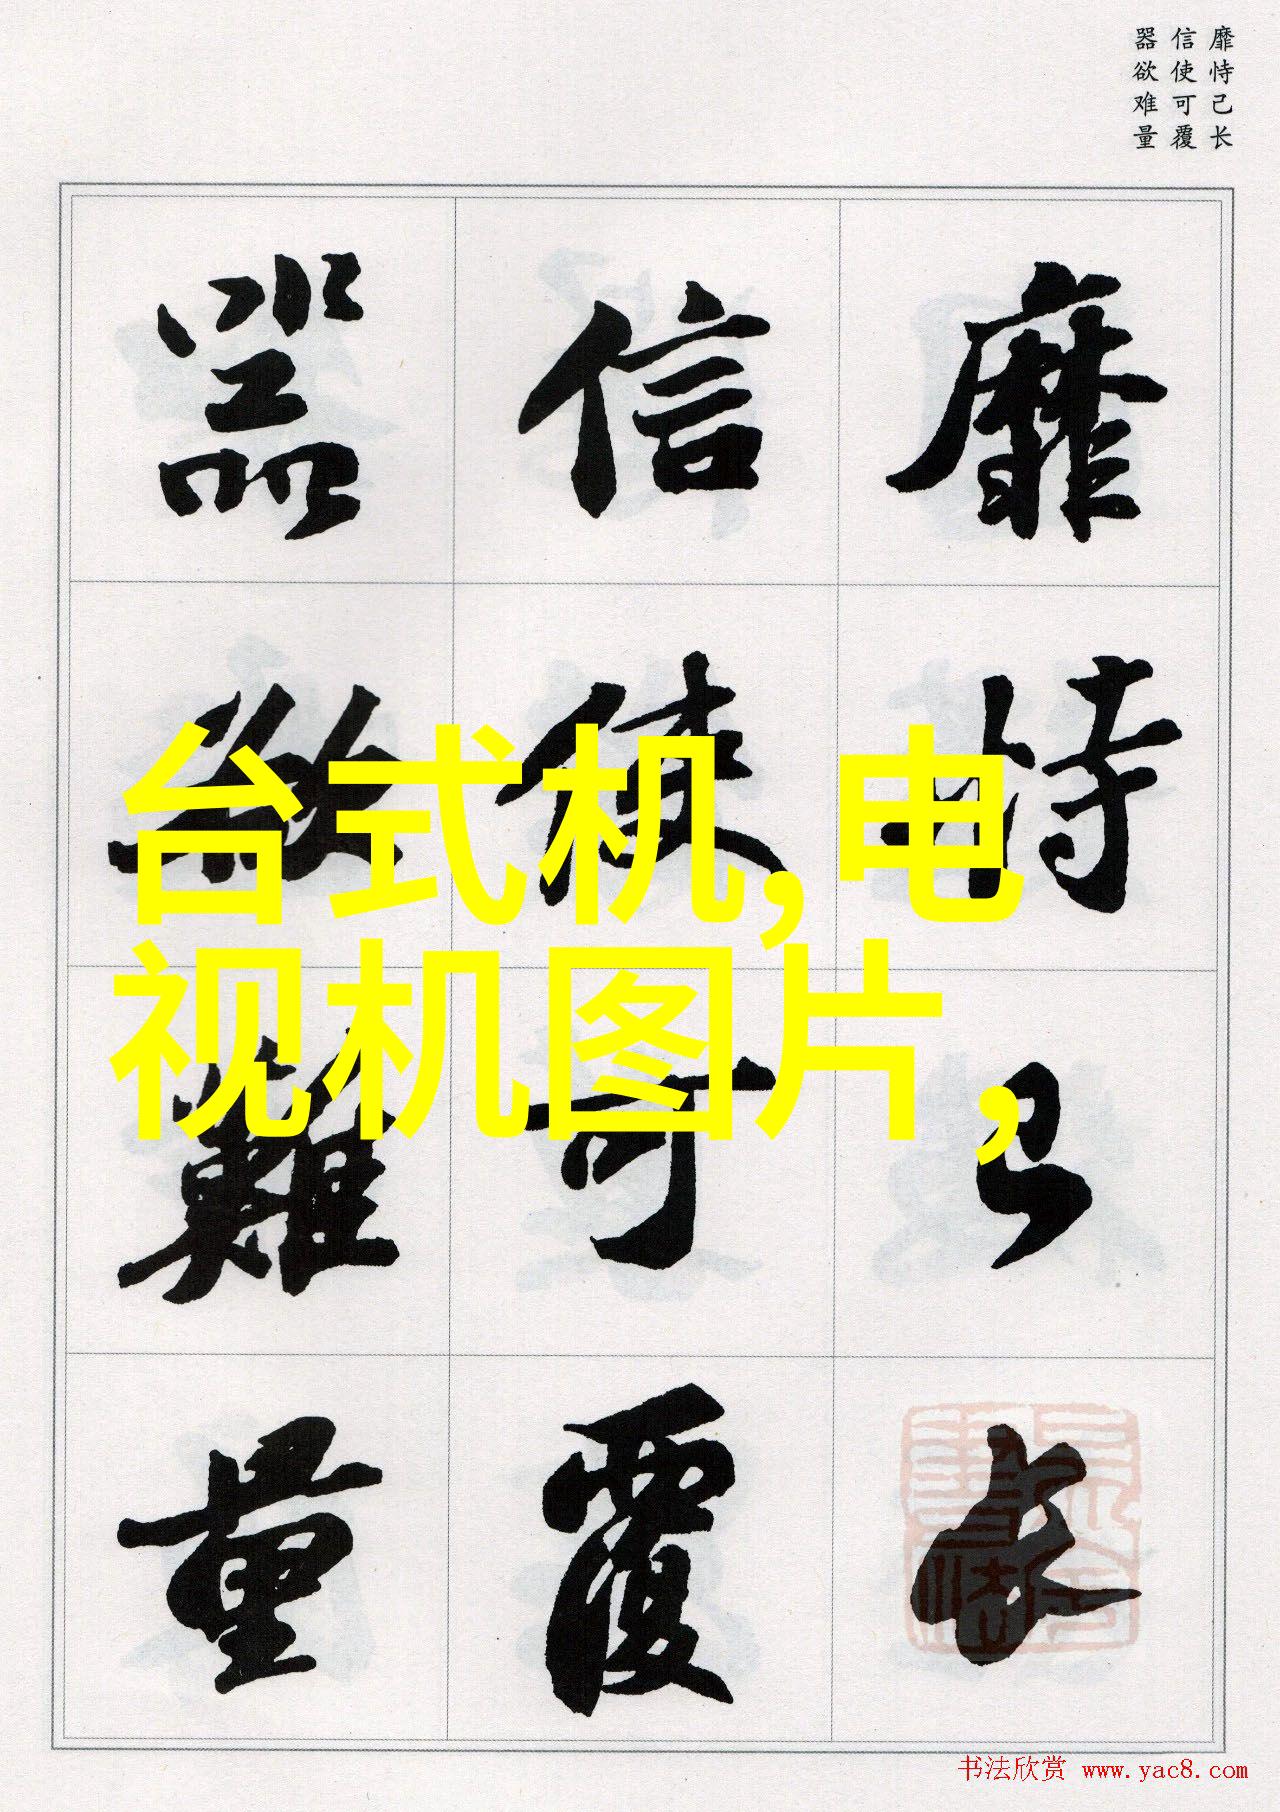 靡恃己长
信使可覆
器欲难量
靡恃己长
信使可覆
器欲難量
台式机,电
视机图片,
书法欣赏 www.yac8.com